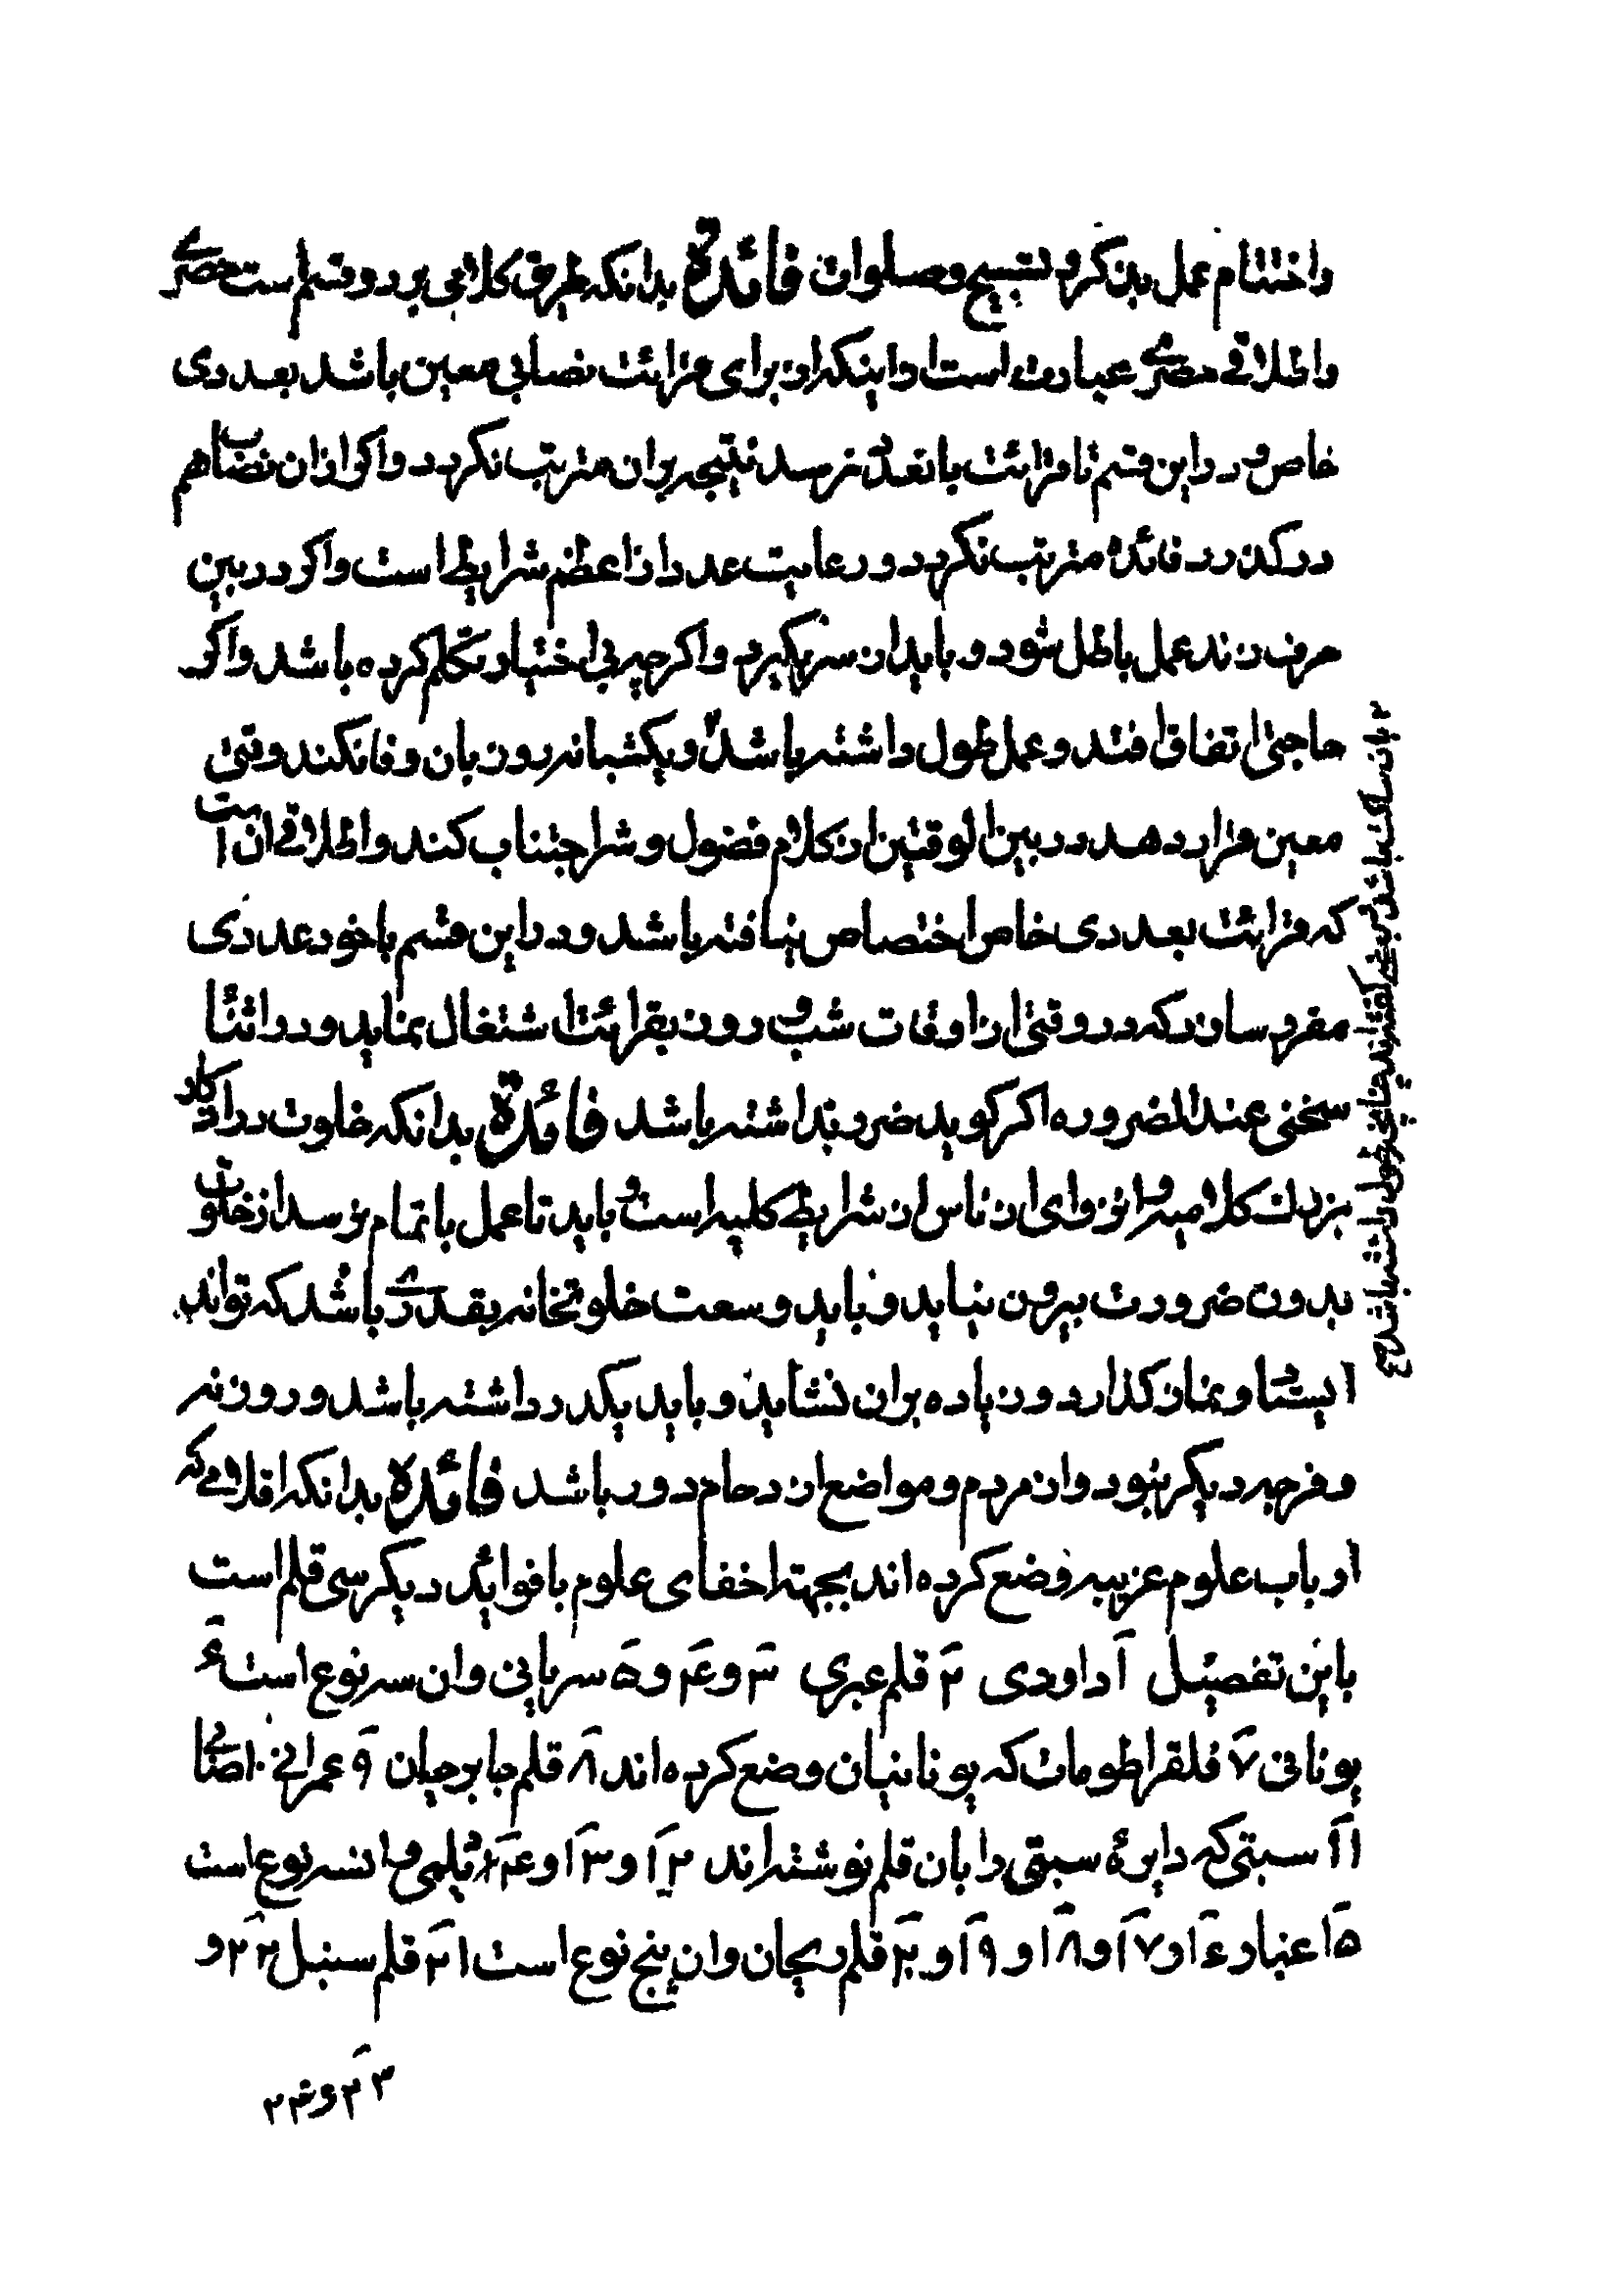 واختتام عمل بذکر و تسبیح و صلوات فائدة بدانکه طریق کلامی بر دو قسم است حصری
واطلاقی حصری عبارت است از اینکه از برای قرائت نصابی معین باشد بعددی
خاص و در این قسم تا قرائت بانعدد نرسد نتیجه بران مترتب نکردد واکر ازان نصاب هم
درکذرد فائده مترتب نکردد و رعایت عدد از اعظم شرایط است واکر در بین
حرف زند عمل باطل شود و باید از سر بکیرد واکرچه بی اختیار تکلم کرده باشد واکر
حاجتی اتفاق افتد و عمل طول داشته باشد و یکشبانه روز بان وفا نکند وقتی
معین قرار دهد در بین الوقتین از کلام فضول و شر اجتناب کند و اطلاقی ان است
که قرائت بعددی خاص اختصاص نیافته باشد و در این قسم با خود عددی
مقرر سازد که در وقتی از اوقات شب و روز بقرائت اشتغال بنماید و در اثنا
سخنی عند الضروره اکر کوید ضرر نداشته باشد فائدة بدانکه خلوت در اذکار
بزرك کلامیه و انزوای از ناس از شرایط کلیه است و باید تا عمل باتمام نرسد از خلوت
بدون ضرورت بیرون نیاید و باید وسعت خلوتخانه بقدری باشد که تواند
ایستاد و نماز کذارد و زیاده بران نشاید و باید یکدر داشته باشد و روزنه
و فرجه دیکر نبود و از مردم و مواضع ازدحام دور باشد فائدة بدانکه اقلامی که
ارباب علوم غریبه وضع کرده اند بجهته اخفای علوم با فوائد دیکر سی قلم است
باین تفصیل ۱ داودی ۲ قلم عبری ۳ و ۴ و ۵ سریانی وان سه نوع است ۶
یونانی ۷ فلقراطومات که یونانیان وضع کرده اند ۸ قلم جابر حیان ۹ عمرانی ۱۰
۱۱ سبتی که دایرۀ سبتی را بان قلم نوشته اند ۱۲ و ۱۳ و ۱۴ و انسه نوع است
۱۵ ۱۶ و ۱۷ و ۱۸ و ۱۹ و ۲۰ قلم ریحان وان پنج نوع است ۲۱ قلم سنبل ۲۲ و
۲۳ و ۲۴